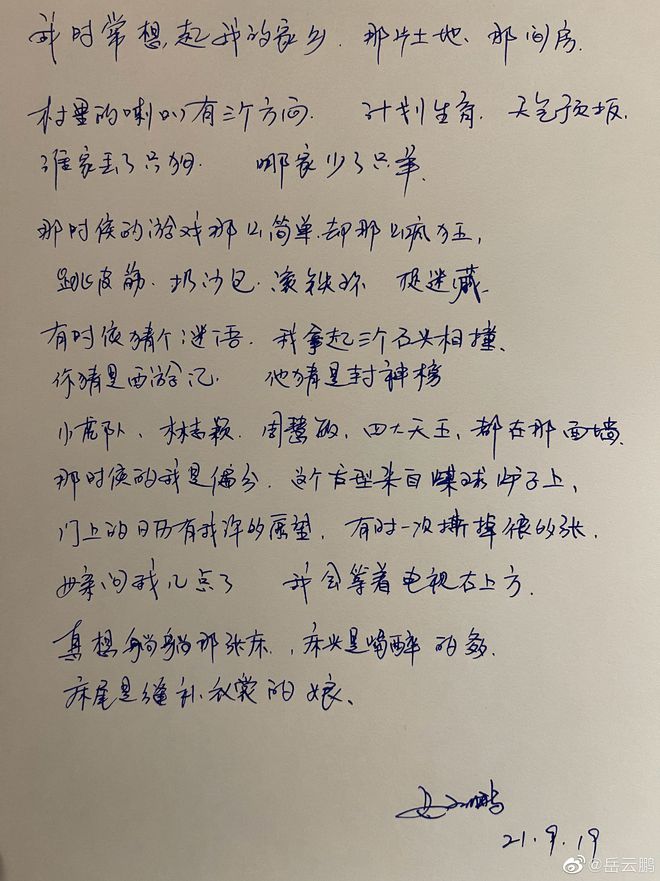 我时常想起我的家乡.那片土地、那间房.
村里的喇叭有三个方向. 计划生育. 天气预报.
谁家丢了只狗. 哪家少了只羊.
那时侯的游戏那么简单.却那么疯狂,
跳皮筋.扔沙包.滚铁环 捉迷藏.
有时侯猜个谜语.我拿起三个石头相撞.
你猜是西游记. 他猜是封神榜
小虎队、林志颖.周慧敏,四大天王,都在那面墙.
那时侯的我是偏分.这个发型来自煤球炉子上,
门上的日历有我许的愿望,有时一次撕掉很多张.
母亲问我几点了 我会等着电视右上方.
真想躺躺那张床.,床头是喝醉的爹.
床尾是缝补衣裳的娘、
岳云鹏
21.9.19
@岳云鹏